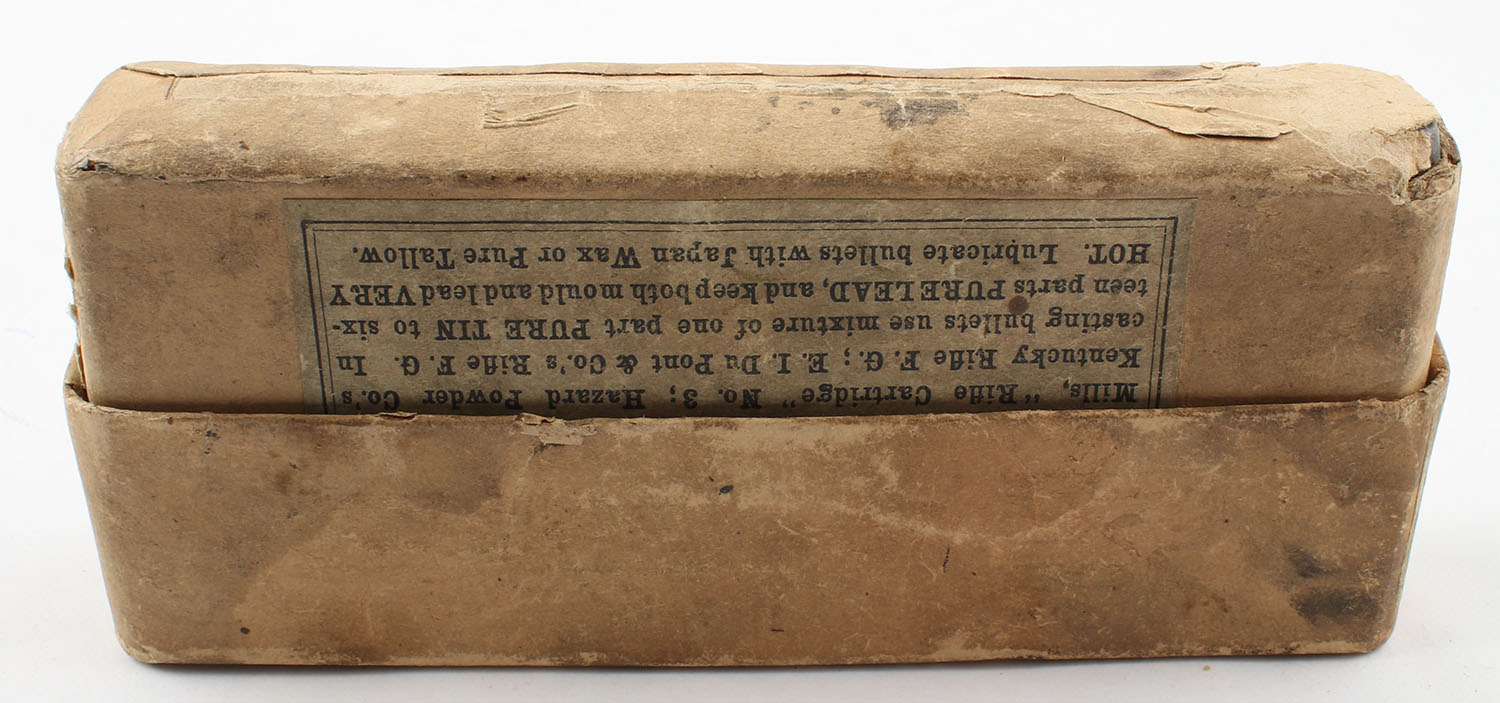 Mills, "Rifle Cartridge" No. 3; Hazard Powder Co.'s
Kentucky Rifle F. G.; E. I. Du Pont & Co.'s Rifle F. G. In
casting bullets use mixture of one part PURE TIN to six-
teen parts PURE LEAD, and keep both mould and lead VERY
HOT. Lubricate bullets with Japan Wax or Pure Tallow.